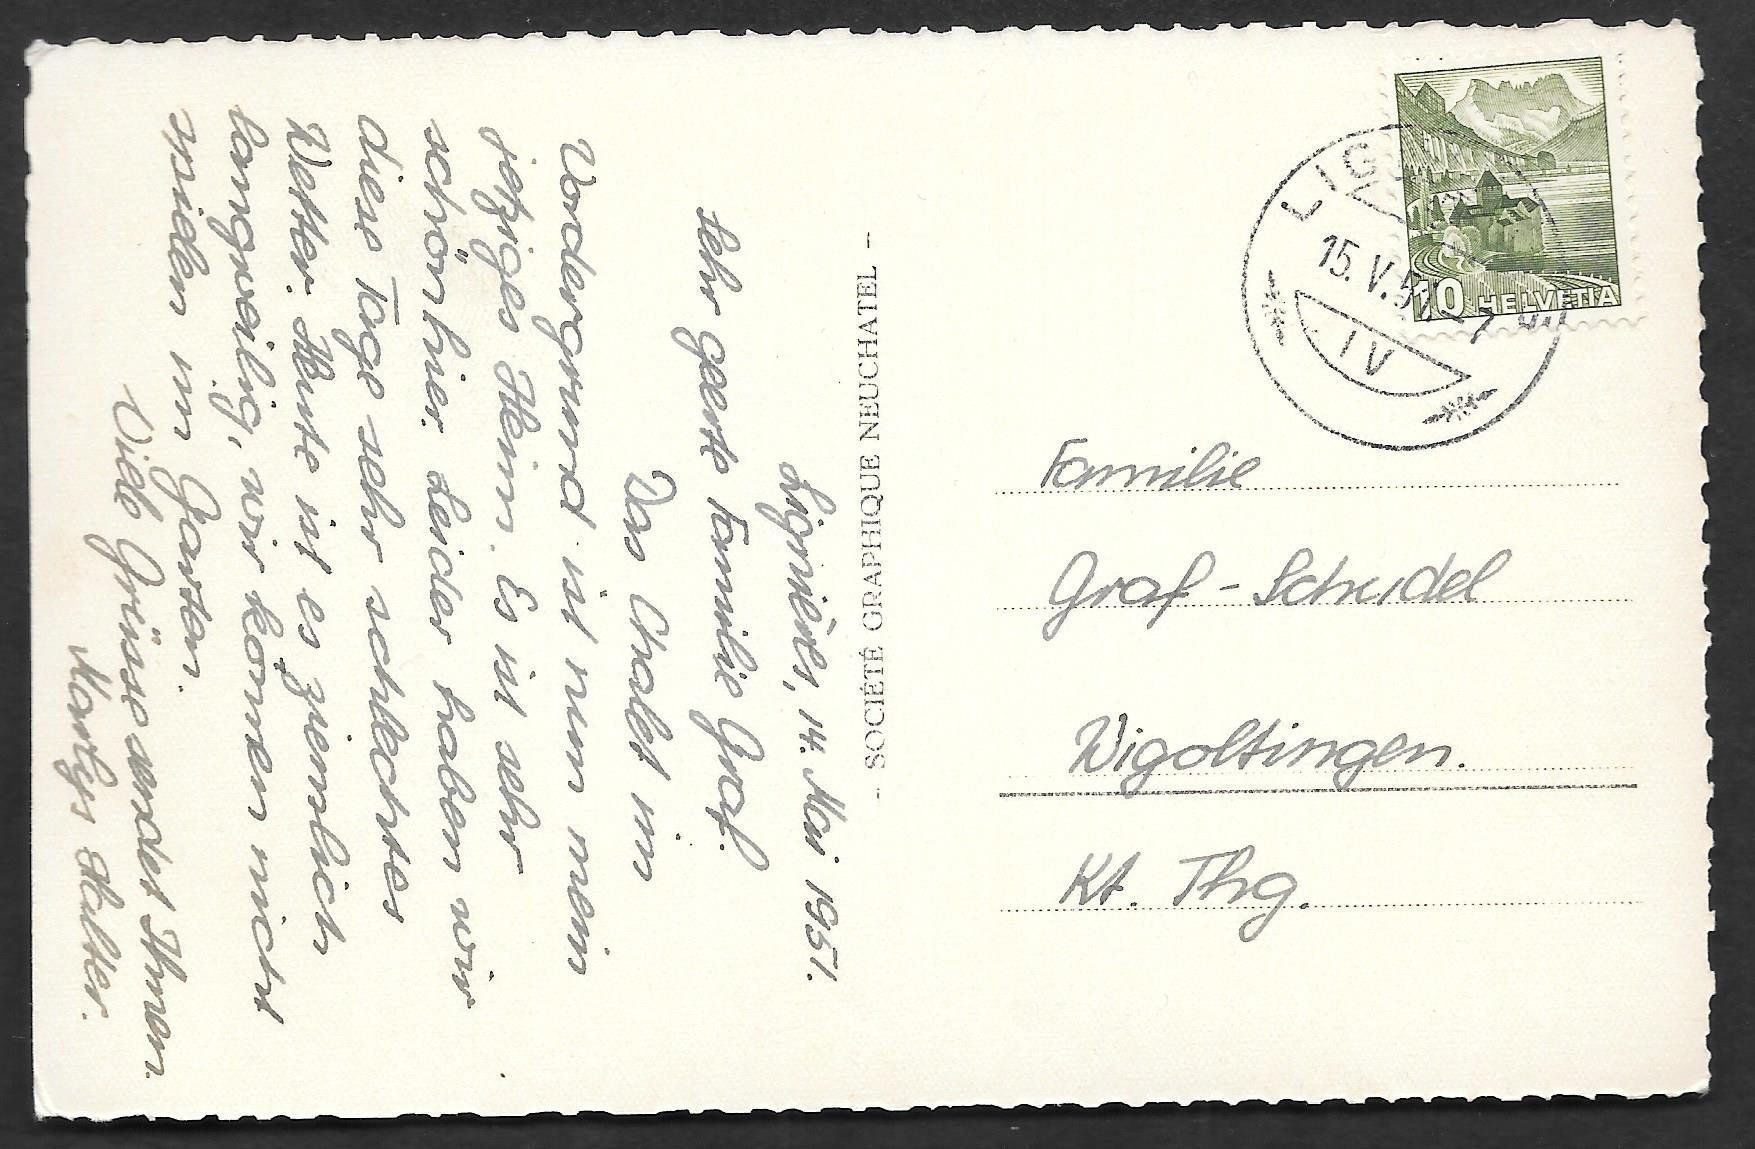 Lignières, 14. Mai 1951.
Sehr geerte Familie Graf.
Das Chalet im
Vordergrund ist nun mein
jetziges Heim. Es ist sehr
schön hier. Leider haben wir
diese Tage sehr schlechtes
Wetter. Heute ist es ziemlich
langweilig, wir können nicht
spielen im Garten.
Viele Grüsse sendet Ihnen
Marlys
- SOCIÉTÉ GRAPHIQUE NEUCHATEL -
10 HELVETIA
15.V.5
IV
Familie
Graf-Scheidel
Wigoltingen.
Kt. Thg.